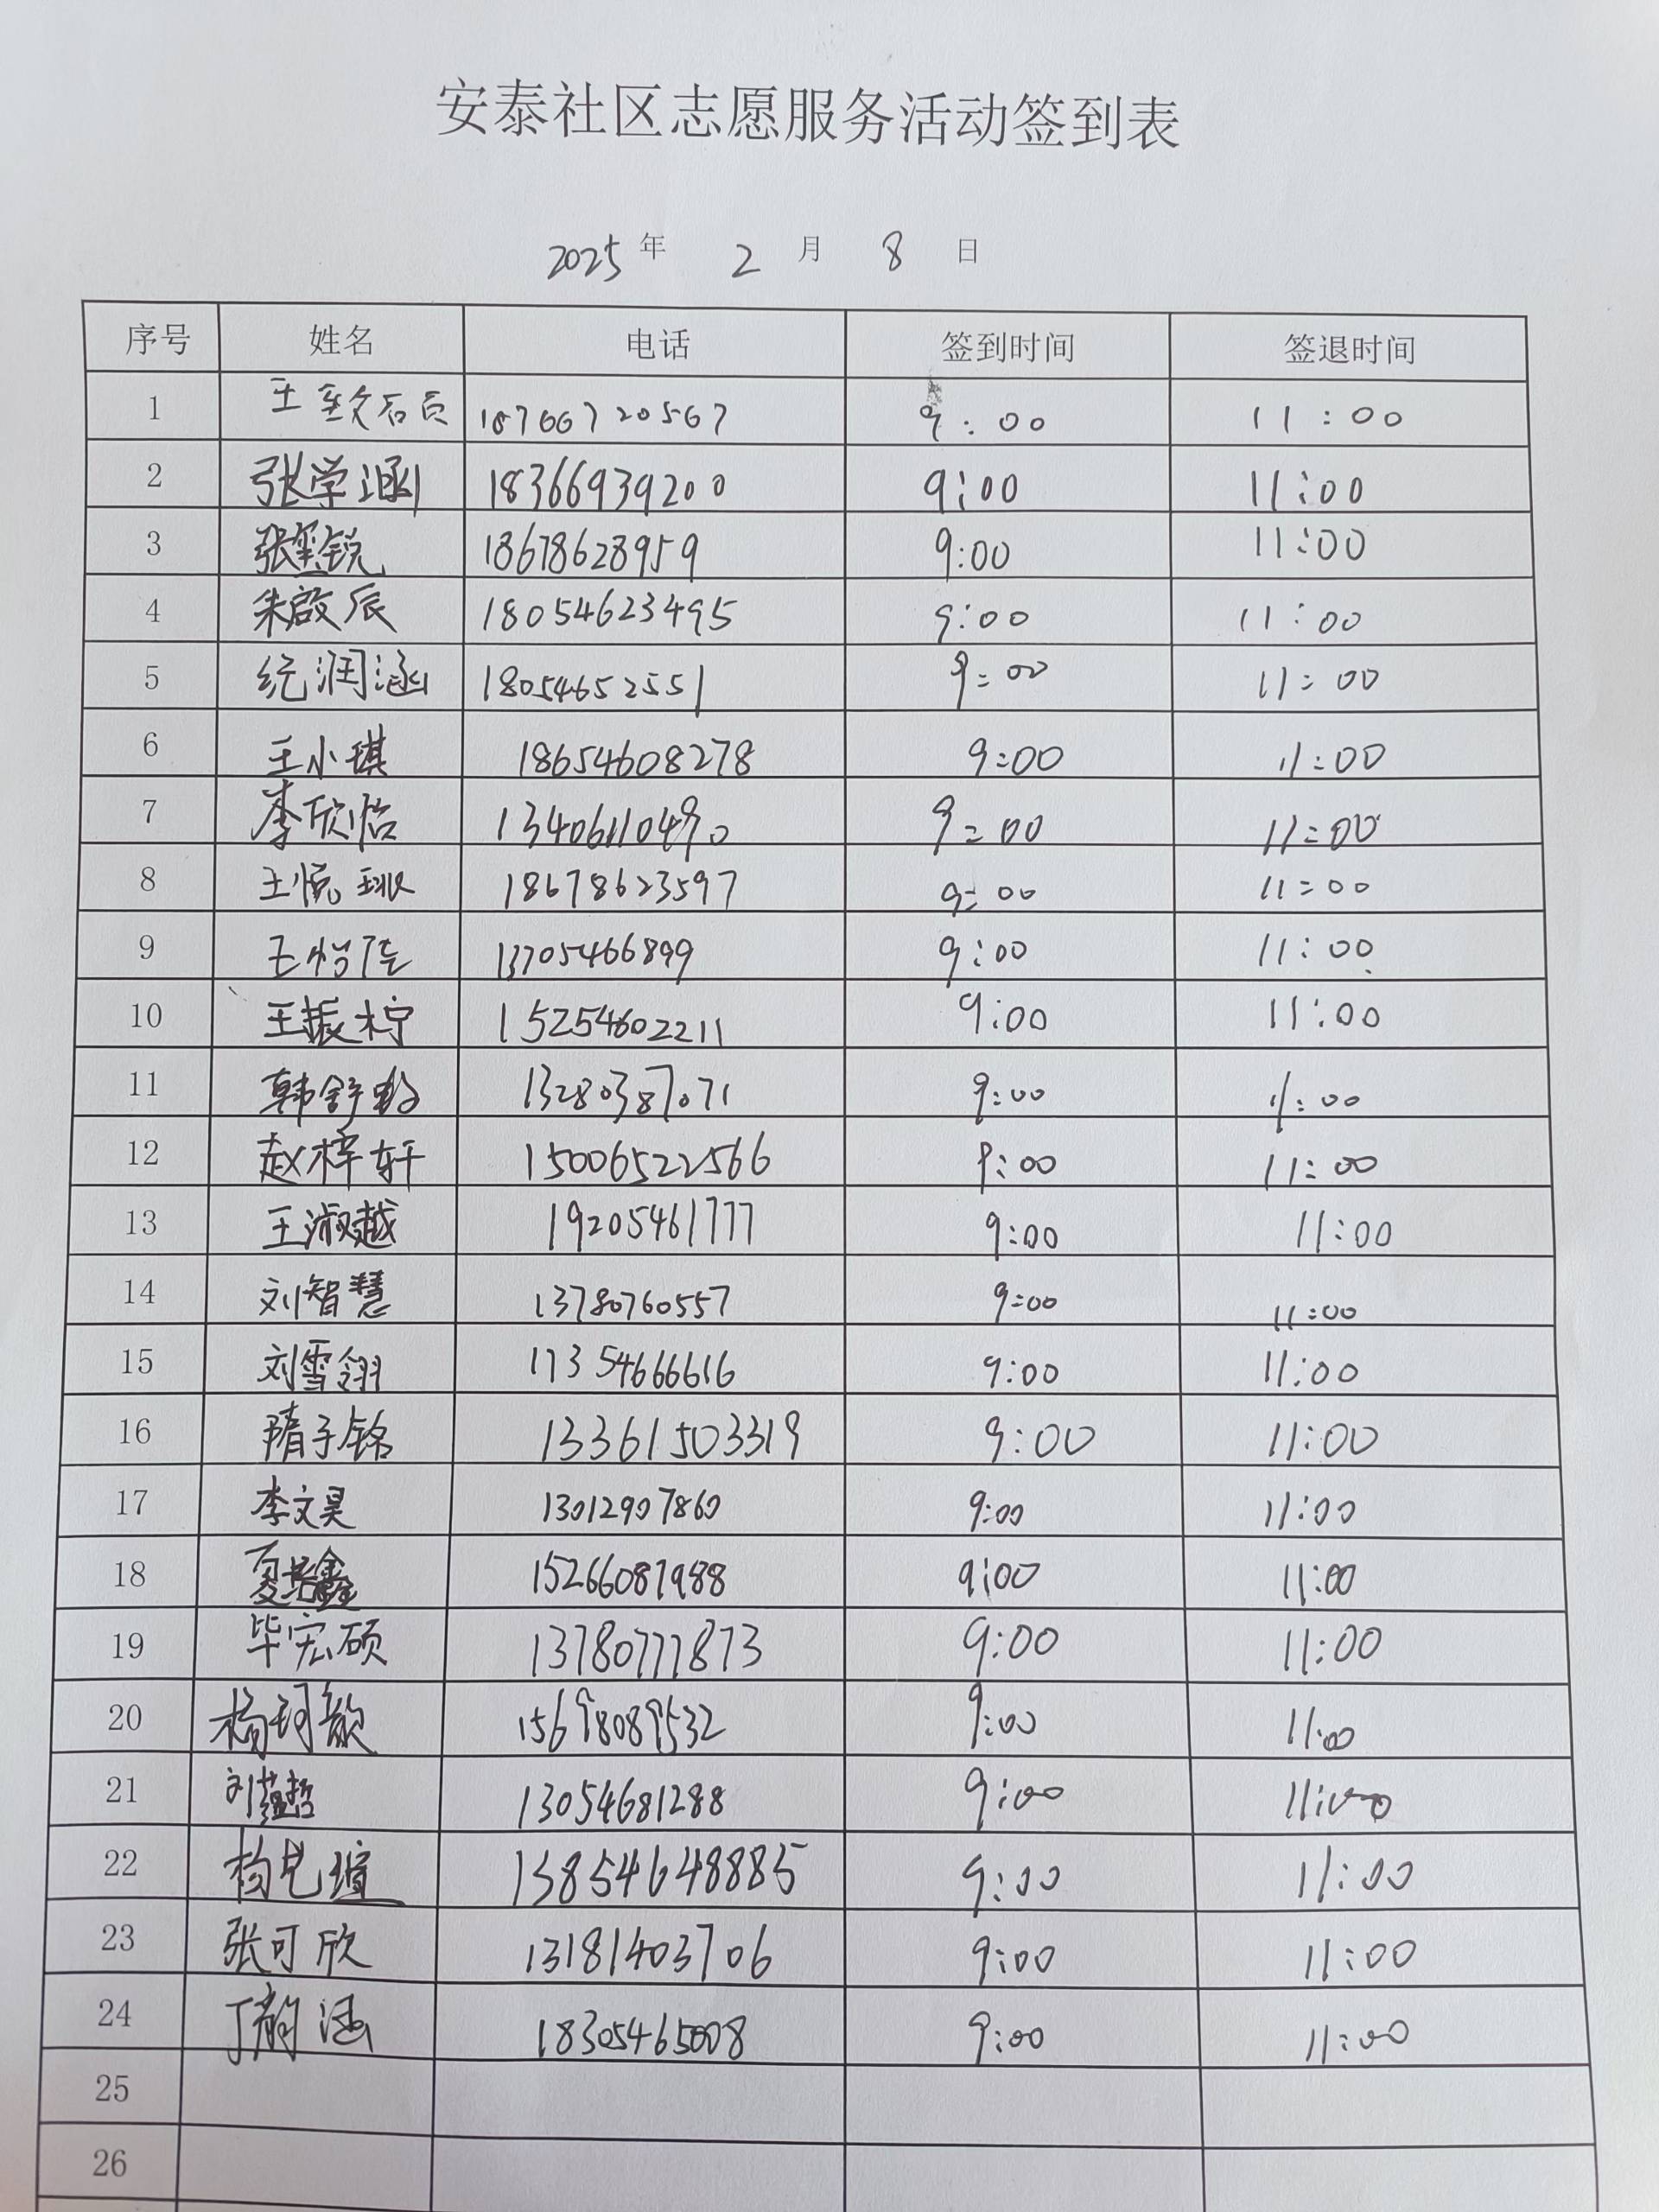 安泰社区志愿服务活动签到表
2025年 2 月 8 日
序号 姓名 电话 签到时间 签退时间
1 王 18766720567 9:00 11:00
2 张学涵 18366939200 9:00 11:00
3 张奕锐 18678628959 9:00 11:00
4 朱啟辰 18054623495 9:00 11:00
5 纪润涵 18054652551 9:00 11:00
6 王小琪 18654608278 9:00 11:00
7 李欣怡 13406110490 9:00 11:00
8 王悦 18678623597 9:00 11:00
9 王怡 13705466899 9:00 11:00
10 王振柠 15254602211 9:00 11:00
11 韩舒 13280387071 9:00 11:00
12 赵梓轩 15006522566 9:00 11:00
13 王淑越 19205461777 9:00 11:00
14 刘智慧 13780760557 9:00 11:00
15 刘雪翎 17354666616 9:00 11:00
16 隋子铭 13361503319 9:00 11:00
17 李文昊 13012907860 9:00 11:00
18 夏 鑫 15266087988 9:00 11:00
19 毕宏硕 13780777873 9:00 11:00
20 杨珂歆 15698089532 9:00 11:00
21 刘蕴哲 13054681288 9:00 11:00
22 杨 13854648885 9:00 11:00
23 张可欣 13181403706 9:00 11:00
24 丁韵涵 18305465008 9:00 11:00
25
26